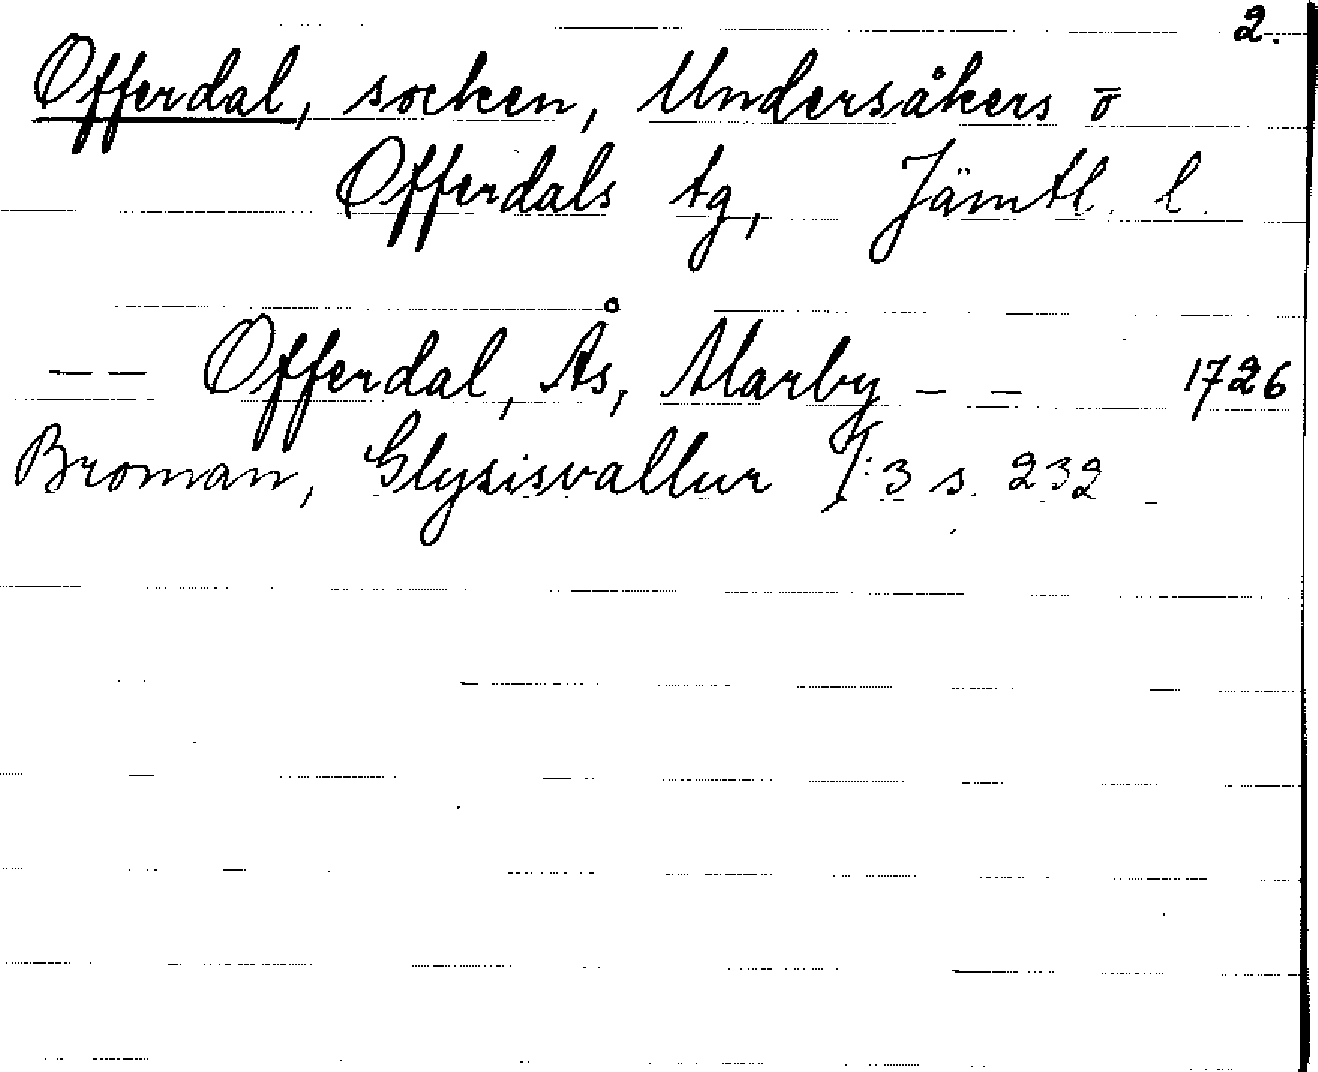 2.
Offerdal, socken, Undersåkers o
Offerdals tg, Jämtl. l.
-- Offerdal, Ås, Marby -- 1726
Broman, Glysisvallur I:3 s. 232